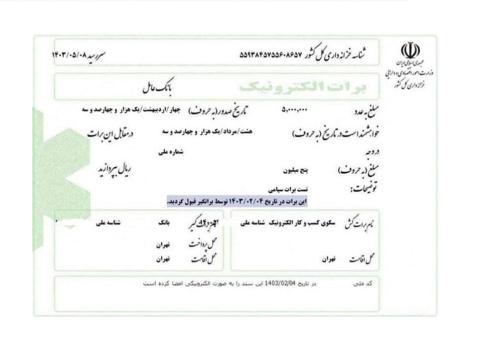 جمهوری اسلامی ایران
وزارت امور اقتصادی و دارایی
خزانه داری کل کشور
شناسه خزانه داری کل کشور ۵۵۹۳۸۴۵۷۵۵۶۰۸۶۵۷
سررسید ۱۴۰۳/۰۵/۰۸
برات الکترونیک
بانک عامل
مبلغ به عدد ۵,۰۰۰,۰۰۰ تاریخ صدور (به حروف) چهار/اردیبهشت/یک هزار و چهارصد و سه
خواهشمند است در تاریخ (به حروف) هشت/مرداد/یک هزار و چهارصد و سه در مقابل این برات
در وجه شماره ملی
مبلغ (به حروف) پنج میلیون ریال بپردازید
توضیحات: تست برات سپامی
این برات در تاریخ ۱۴۰۳/۰۲/۰۴ توسط براتگیر قبول گردید.
نام برات کش سکوی کسب و کار الکترونیک شناسه ملی
محل اقامت تهران
بانک شناسه ملی
محل پرداخت تهران
محل اقامت تهران
کد ملی در تاریخ 1403/02/04 این سند را به صورت الکترونیکی امضا کرده است